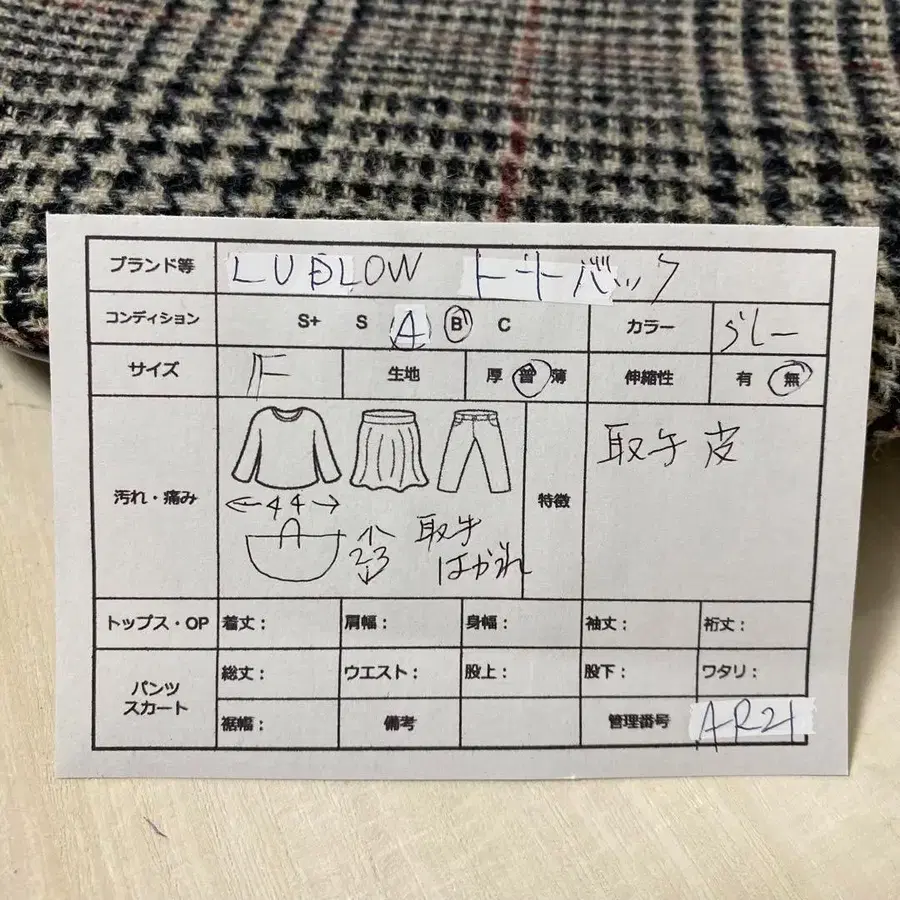 ブランド等 LUDLOW トートバック
コンディション S+ S A B C カラー グレー
サイズ F 生地 厚 普 薄 伸縮性 有 無
汚れ・痛み 特徴 取手 皮
44
23 取手
はがれ
トップス・OP 着丈: 肩幅: 身幅: 袖丈: 裄丈:
パンツ
スカート
総丈: ウエスト: 股上: 股下: ワタリ:
裾幅: 備考 管理番号 AR21